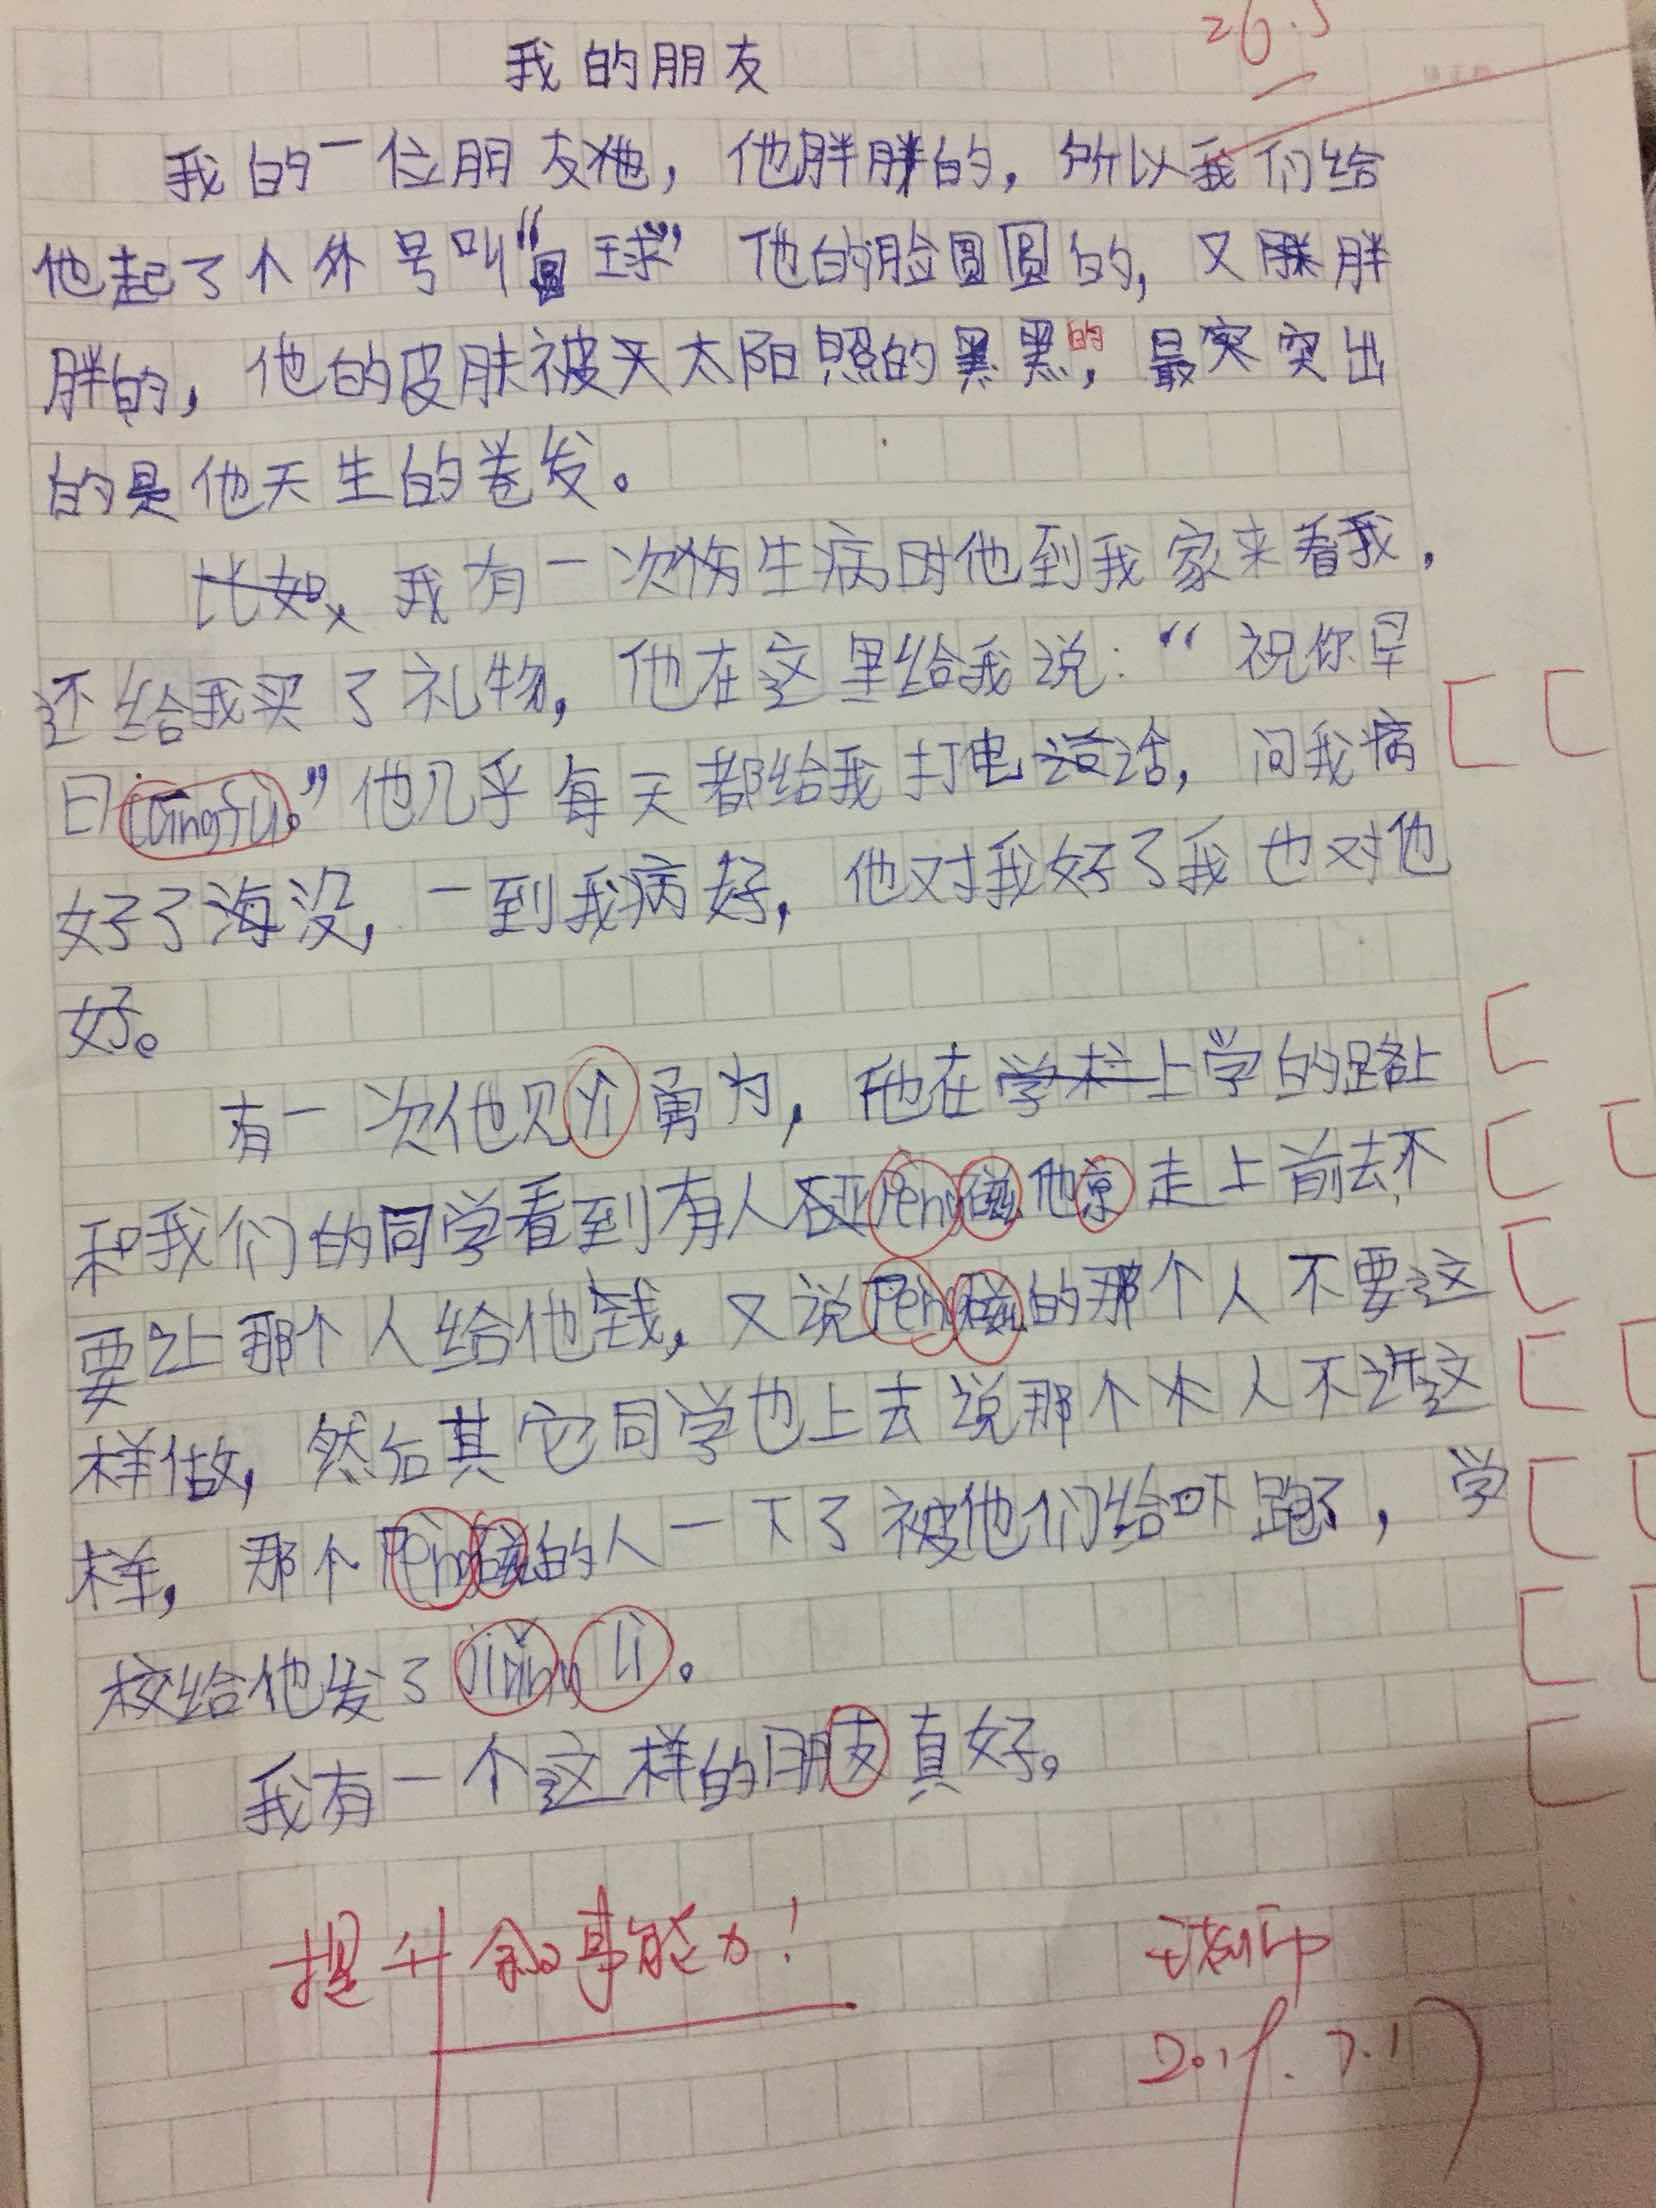 26.5
我的朋友
我的一位朋友他，他胖胖的，所以我们给
他起了个外号叫“圆球”他的脸圆圆的，又胖
胖的，他的皮肤被天太阳照的黑黑的，最突突出
的是他天生的卷发。
比如，我有一次生病时他到我家来看我，
还给我买了礼物，他在这里给我说：“祝你早
日 。”他几乎每天都给我打电话，问我病
好了没，一到我病好，他对我好了我也对他
好。
有一次他见 勇为，他在学校上学的路上
和我们的同学看到有人 Peng磁他 走上前去不
要让那个人给他钱，又说Peng磁的那个人不要这
样做，然后其它同学也上去说那个人不 这
样，那个Peng磁的人一下了被他们给吓跑了，学
校给他发了 li。
我有一个这样的朋友真好。
提升叙事能力！